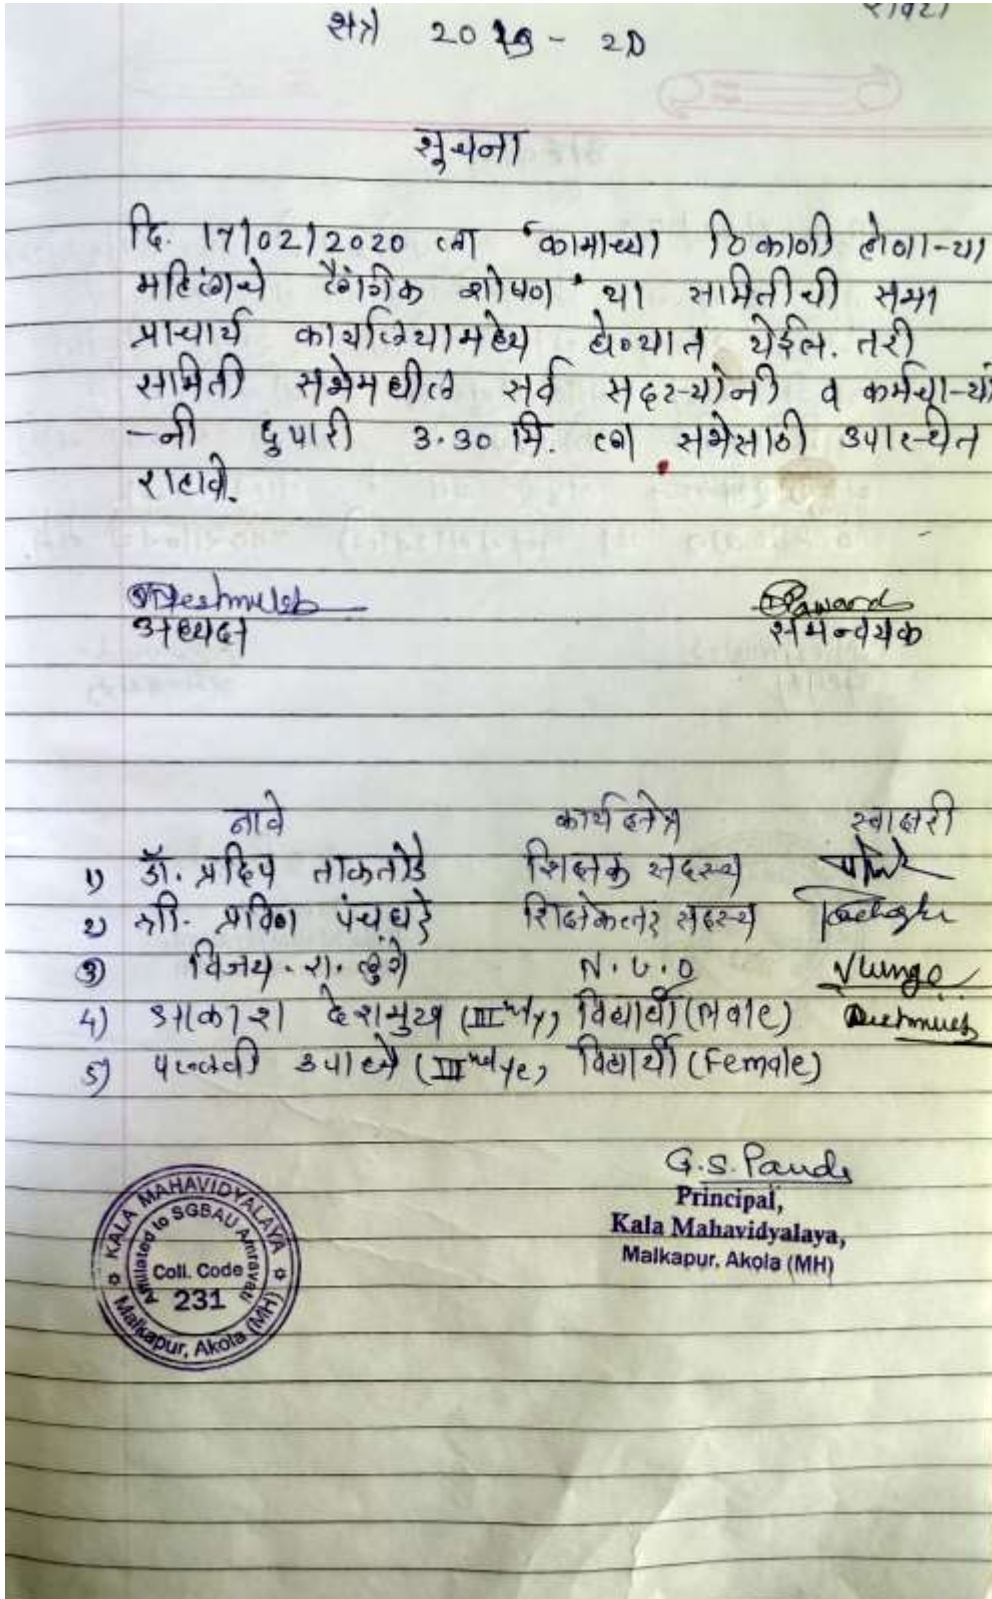 सत्र 2019 - 20
सुचना
दि. 17/02/2020 ला "कामाच्या ठिकाणी होणा-या
महिलांचे लैंगीक शोषण" या समितीची सभा
प्राचार्य कार्यालयामध्ये घेण्यात येईल. तरी
समिती सभेमधील सर्व सदस्यांनी व कर्मचा-यां
-नी दुपारी 3.30 मि. ला सभेसाठी उपस्थित
राहावे.
Deshmukh
अध्यक्ष
समन्वयक
नावे कार्यक्षेत्र स्वाक्षरी
1) डॉ. प्रदिप ताकतोडे शिक्षक सदस्य
2) श्री. प्रविण पंचघरे शिक्षकेत्तर सदस्य
3) विजय. रा. लुंगे N.G.O Vlunge
4) आकाश देशमुख (III yr) विद्यार्थी (Male) Deshmukh
5) पल्लवी उपाध्ये (III ye) विद्यार्थी (Female)
G.S. Pande
Principal,
Kala Mahavidyalaya,
Malkapur, Akola (MH)
KALA MAHAVIDYALAYA
Affiliated to SGBAU Amravati
Coll. Code
231
Malkapur, Akola (MH)